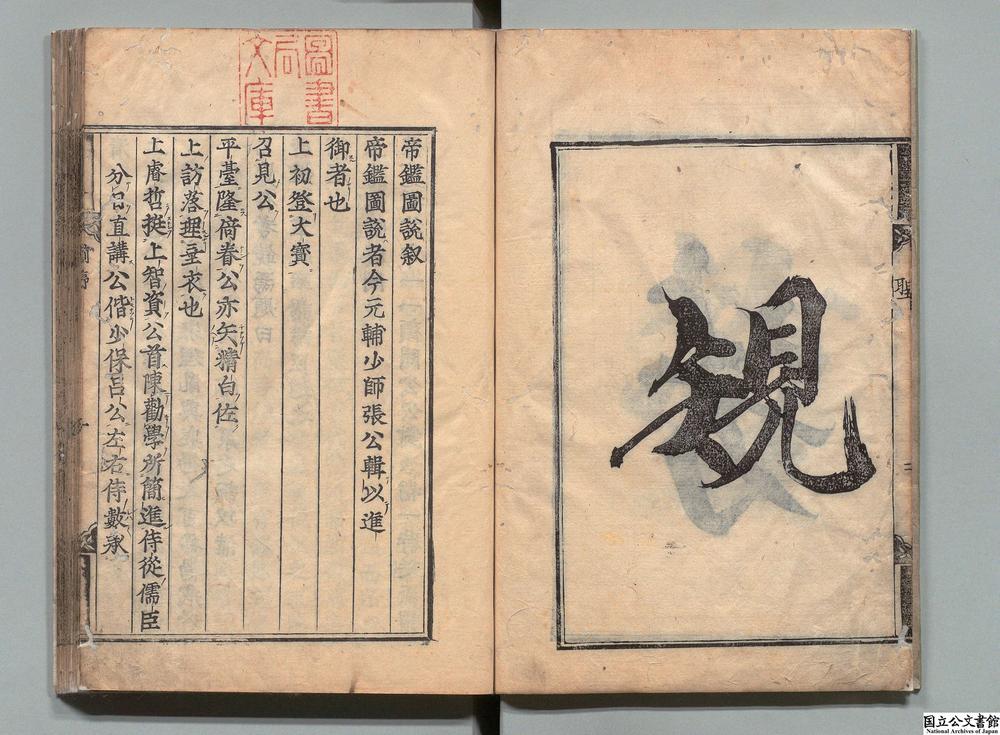 規
聖
圖書
局
文庫
帝鑑圖說叙
帝鑑圖說者今元輔少師張公輯以進
御者也
上初登大寶
召見公
平臺隆荷眷公亦矢精白佐
上訪落理垂衣也
上睿哲挺上智資公首陳勸學所簡進侍從儒臣
分日直講公偕少保呂公左右侍數承
国立公文書館
National Archives of Japan